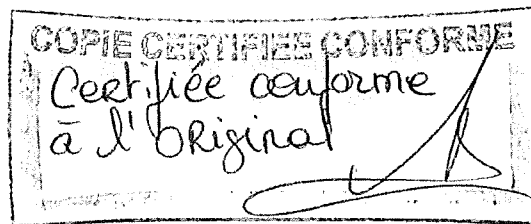 COPIE CERTIFIEE CONFORME
Certifiée conforme
à l'original